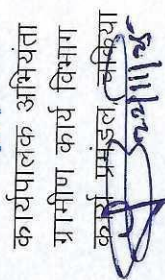 कार्यपालक अभियंता
ग्रामीण कार्य विभाग
कार्य प्रमंडल, चकिया